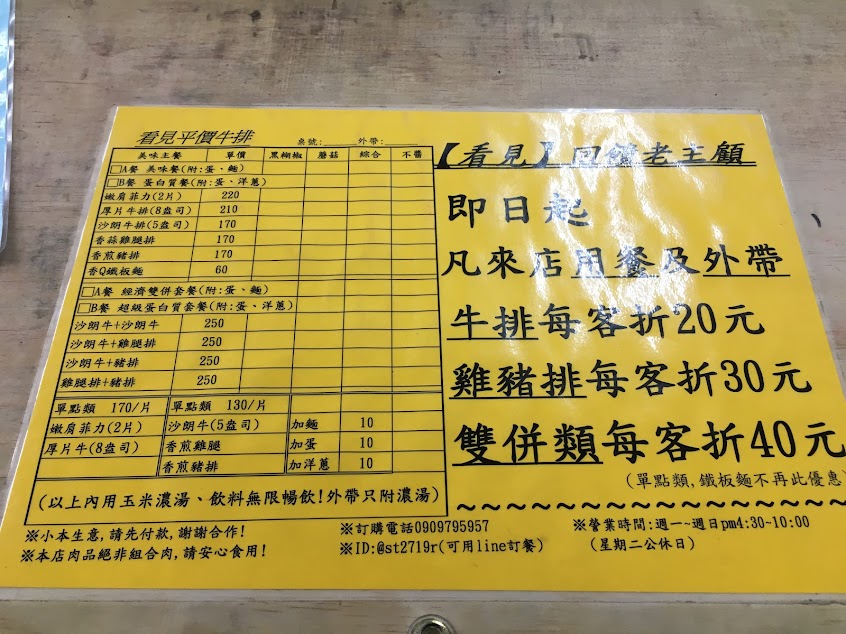 看見平價牛排 桌號:______外帶:______
美味主餐 單價 黑椒椒 蘑菇 綜合 不醬
□A餐 美味餐(附:蛋、麵)
□B餐 蛋白質餐(附:蛋、洋蔥)
嫩肩菲力(2片) 220
厚片牛排(8盎司) 210
沙朗牛排(5盎司) 170
香蒜雞腿排 170
香煎豬排 170
香Q鐵板麵 60
□A餐 經濟雙併套餐(附:蛋、麵)
□B餐 超級蛋白質套餐(附:蛋、洋蔥)
沙朗牛+沙朗牛 250
沙朗牛+雞腿排 250
沙朗牛+豬排 250
雞腿排+豬排 250
單點類 170/片 單點類 130/片
嫩肩菲力(2片) 沙朗牛(5盎司) 加麵 10
厚片牛(8盎司) 香煎雞腿 加蛋 10
香煎豬排 加洋蔥 10
(以上內用玉米濃湯、飲料無限暢飲!外帶只附濃湯)
【看見】回饋老主顧
即日起
凡來店用餐及外帶
牛排每客折20元
雞豬排每客折30元
雙併類每客折40元
(單點類,鐵板麵不再此優惠)
~~~~~~~~~~~~~~~~~~~~
※小本生意,請先付款,謝謝合作!
※本店肉品絕非組合肉,請安心食用!
※訂購電話0909795957
※ID:@st2719r(可用line訂餐)
※營業時間:週一~週日pm4:30-10:00
(星期二公休日)